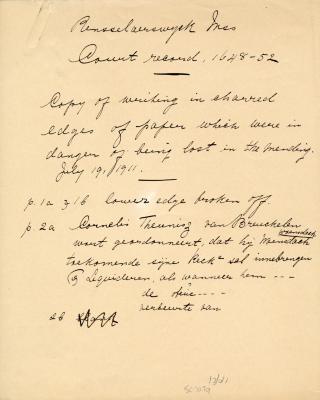 Rensselaerswyck Mss
Court record, 1648-52
Copy of writing in charred
edges of paper which were in
danger of being lost in the mending.
July 19, 1911.
p. 1a & 1b lower edge broken off.
p. 2a Cornelis Theunisz van Breuckelen
woensdach
wort geordonneert, dat hij Weensdach
toekomende sijne Reck^e sal innebrengen
Liquideren, als wanneer hem ---
de ----
verbeurte van
2b